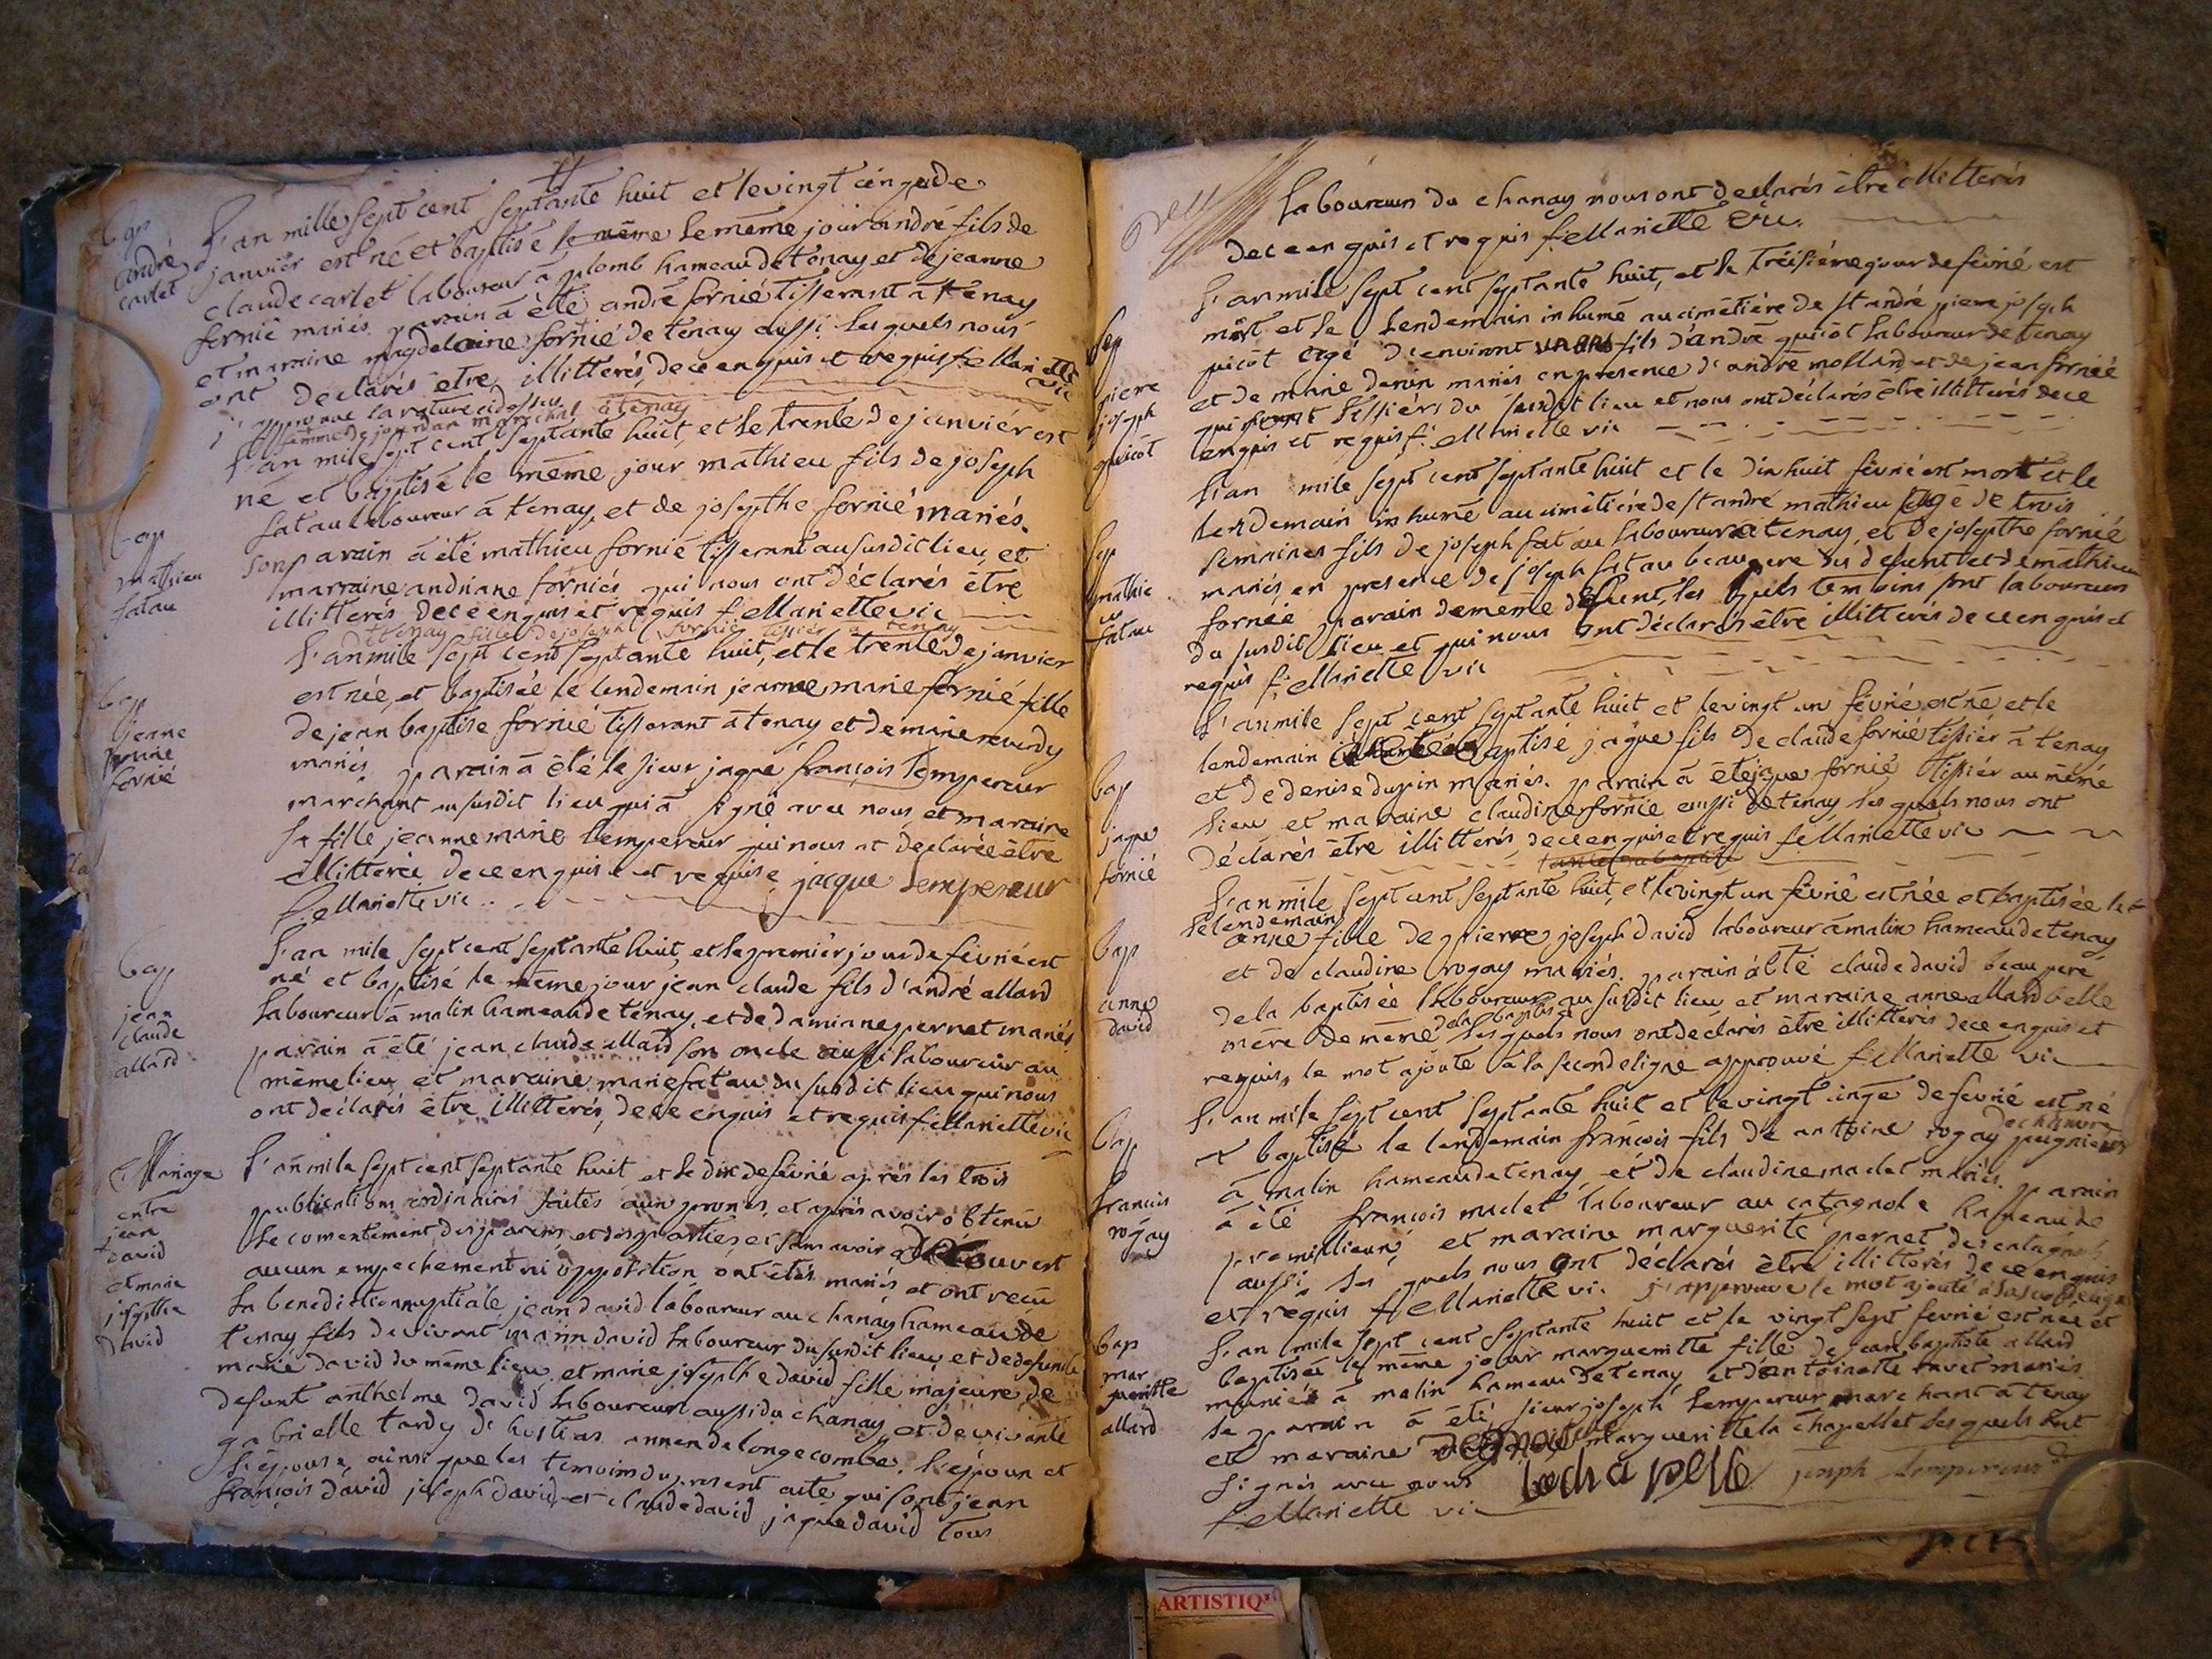 bap
andré
carlet
L'an mille sept cent septante huit et le vingt cinq de
janvier est né et baptisé le même le même jour andré fils de
claude carlet laboureur à plomb hameau de tenay et de jeanne
fornié mariés. parain à été andré fornié tisserant à tenay
et maraine magdelaine fornié de tenay aussi lesquels nous
ont déclarés être illitterés, de ce enquis et requis f. Mariette
vic
j'approuve la rature cidessus
femme de jourdan marechal à tenay
L'an mile sept cent septante huit, et le trente de janviér est
né et baptisé le même jour mathieu fils de joseph
fatau laboureur à tenay, et de josepthe fornié mariés.
son parain à été mathieu fornié tisserant au susdit lieu, et
marraine andriane forniés qui nous ont déclarés être
illitterés de ce enquis et requis f. Mariette vic
bap
mathieu
fatau
tenay fille de joseph fornié tissier à tenay
L'an mile sept cent septante huit, et le trente de janvier
est née, et baptisée le lendemain jeanne marie fornié fille
de jean baptise fornié tisserant à tenay et de marie reverdy
mariés parain à été le sieur jaque françois Lempereur
marchant au susdit lieu qui à signé avec nous et maraine
sa fille jeanne marie Lempereur qui nous at déclarée être
illitterée de ce enquise et requise jacque Lempereur
f. Mariette vic
bap
jeanne
marie
fornié
L'an mile sept cent septante huit, et le premiér jour de fevrié est
né et baptisé le même jour jean claude fils d'andré allard
laboureur à malin hameau de tenay, et de damiane pernet mariés
parain à été jean claude allard son oncle aussi laboureur au
même lieu et maraine marie fatau du susdit lieu qui nous
ont déclarés être illitterés, de ce enquis et requis f. Mariette vic
bap
jean
claude
allard
Mariage
entre
jean
david
et marie
josepthe
david
L'an mile sept cent septante huit et le dix de fevrié après les trois
publications ordinaires faites aux prones, et après avoir obtenu
le consentement des parens et des parties et sans avoir découvert
aucun empechement ni opposition ont étés mariés et ont recu
la benediction nuptiale jean david laboureur au chanay hameau de
tenay fils de vivant marin david laboureur du susdit lieu et de defunte
marie david du même lieu, et marie josepthe david fille majeure de
defunt anthelme david laboureur aussi du chanay, et de vivante
gabrielle tardy de hostias annex de longecombe. l'époux et
l'épouse, ainsi que les temoins du present acte qui sont jean
françois david joseph david, et claude david jaque david tous
laboureurs du chanay nous ont declarés être illitterés
de ce enquis et requis f. Mariette vic.
Sep
piere
joseph
quicot
L'an mile sept cent septante huit, et le treisiéme jour de fevrié est
mort et le lendemain inhumé au cimetiére de st andré piere joseph
quicôt agé d'environt un an fils d'andré quicôt laboureur de tenay
et de marie danin mariés en presence d'andré mollard et de jean fornié
qui sont tissiérs du susdit lieu et nous ont déclarés être illitterés de ce
enquis et requis f. Mariette vic
Sep
mathie
u
fatau
L'an mile sept cent septante huit et le dix huit fevrié est mort et le
lendemain inhumé au cimêtiére de st andré mathieu agé de trois
semaines fils de joseph fatau laboureur à tenay, et de josepthe fornié
mariés, en presence de joseph fatau beau pere du defunt et de mathieu
fornié parain de même defunt, les quels temoins sont laboureurs
du susdit lieu et qui nous ont déclarés être illitterés de ce enquis et
requis f. Mariette vic
bap
jaque
fornié
L'an mile sept cent septante huit et le vingt un fevrié est né et le
lendemain baptisé jaque fils de claude fornié tissiér à tenay
et de denise dupin mariés. parain à été jaque fornié tissiér au même
lieu et maraine claudine fornié aussi de tenay, les quels nous ont
déclarés être illitterés, de ce enquis et requis f. Mariette vic
bap
anne
david
L'an mile sept cent septante huit, et le vingt un fevrié est née et baptisée le
le lendemain
anne fille de pierre joseph david laboureur à malin hameau de tenay
et de claudine rogay mariés. parain à été claude david beau pere
de la baptisée laboureur au susdit lieu et maraine anne allard belle
mére de même de la baptisée les quels nous ont déclarés être illitterés de ce enquis et
requis, le mot ajouté à la seconde ligne approuvé f. Mariette vic
bap
francois
rogay
L'an mile sept cent septante huit et le vingt cinqe de fevrié est né
et baptisé le lendemain françois fils de antoine rogay peignieur
de chanvre
à malin hameau de tenay, et de claudine maclet mariés. parain
à été françois maclet laboureur au catagnole hameau de
premillieux et maraine marguerite pernet de catagnole
aussi, les quels nous ont déclarés être illitterés de ce enquis
et requis f. Mariette vic j'approuve le mot ajouté à la seconde ligne
bap
mar
gueritte
allard
L'an mile sept cent septante huit et le vingt sept fevrié est née et
baptisée le même jour margueritte fille de jean baptiste allard
munier à malin hameau de tenay et d'antoinette ravet mariés.
le parain à été sieur joseph Lempereur marchant à tenay
et maraine margueritte la chapelle lesquels ont
signés avec nous lachapelle joseph Lempereur
f. Mariette vic
ARTISTIQ